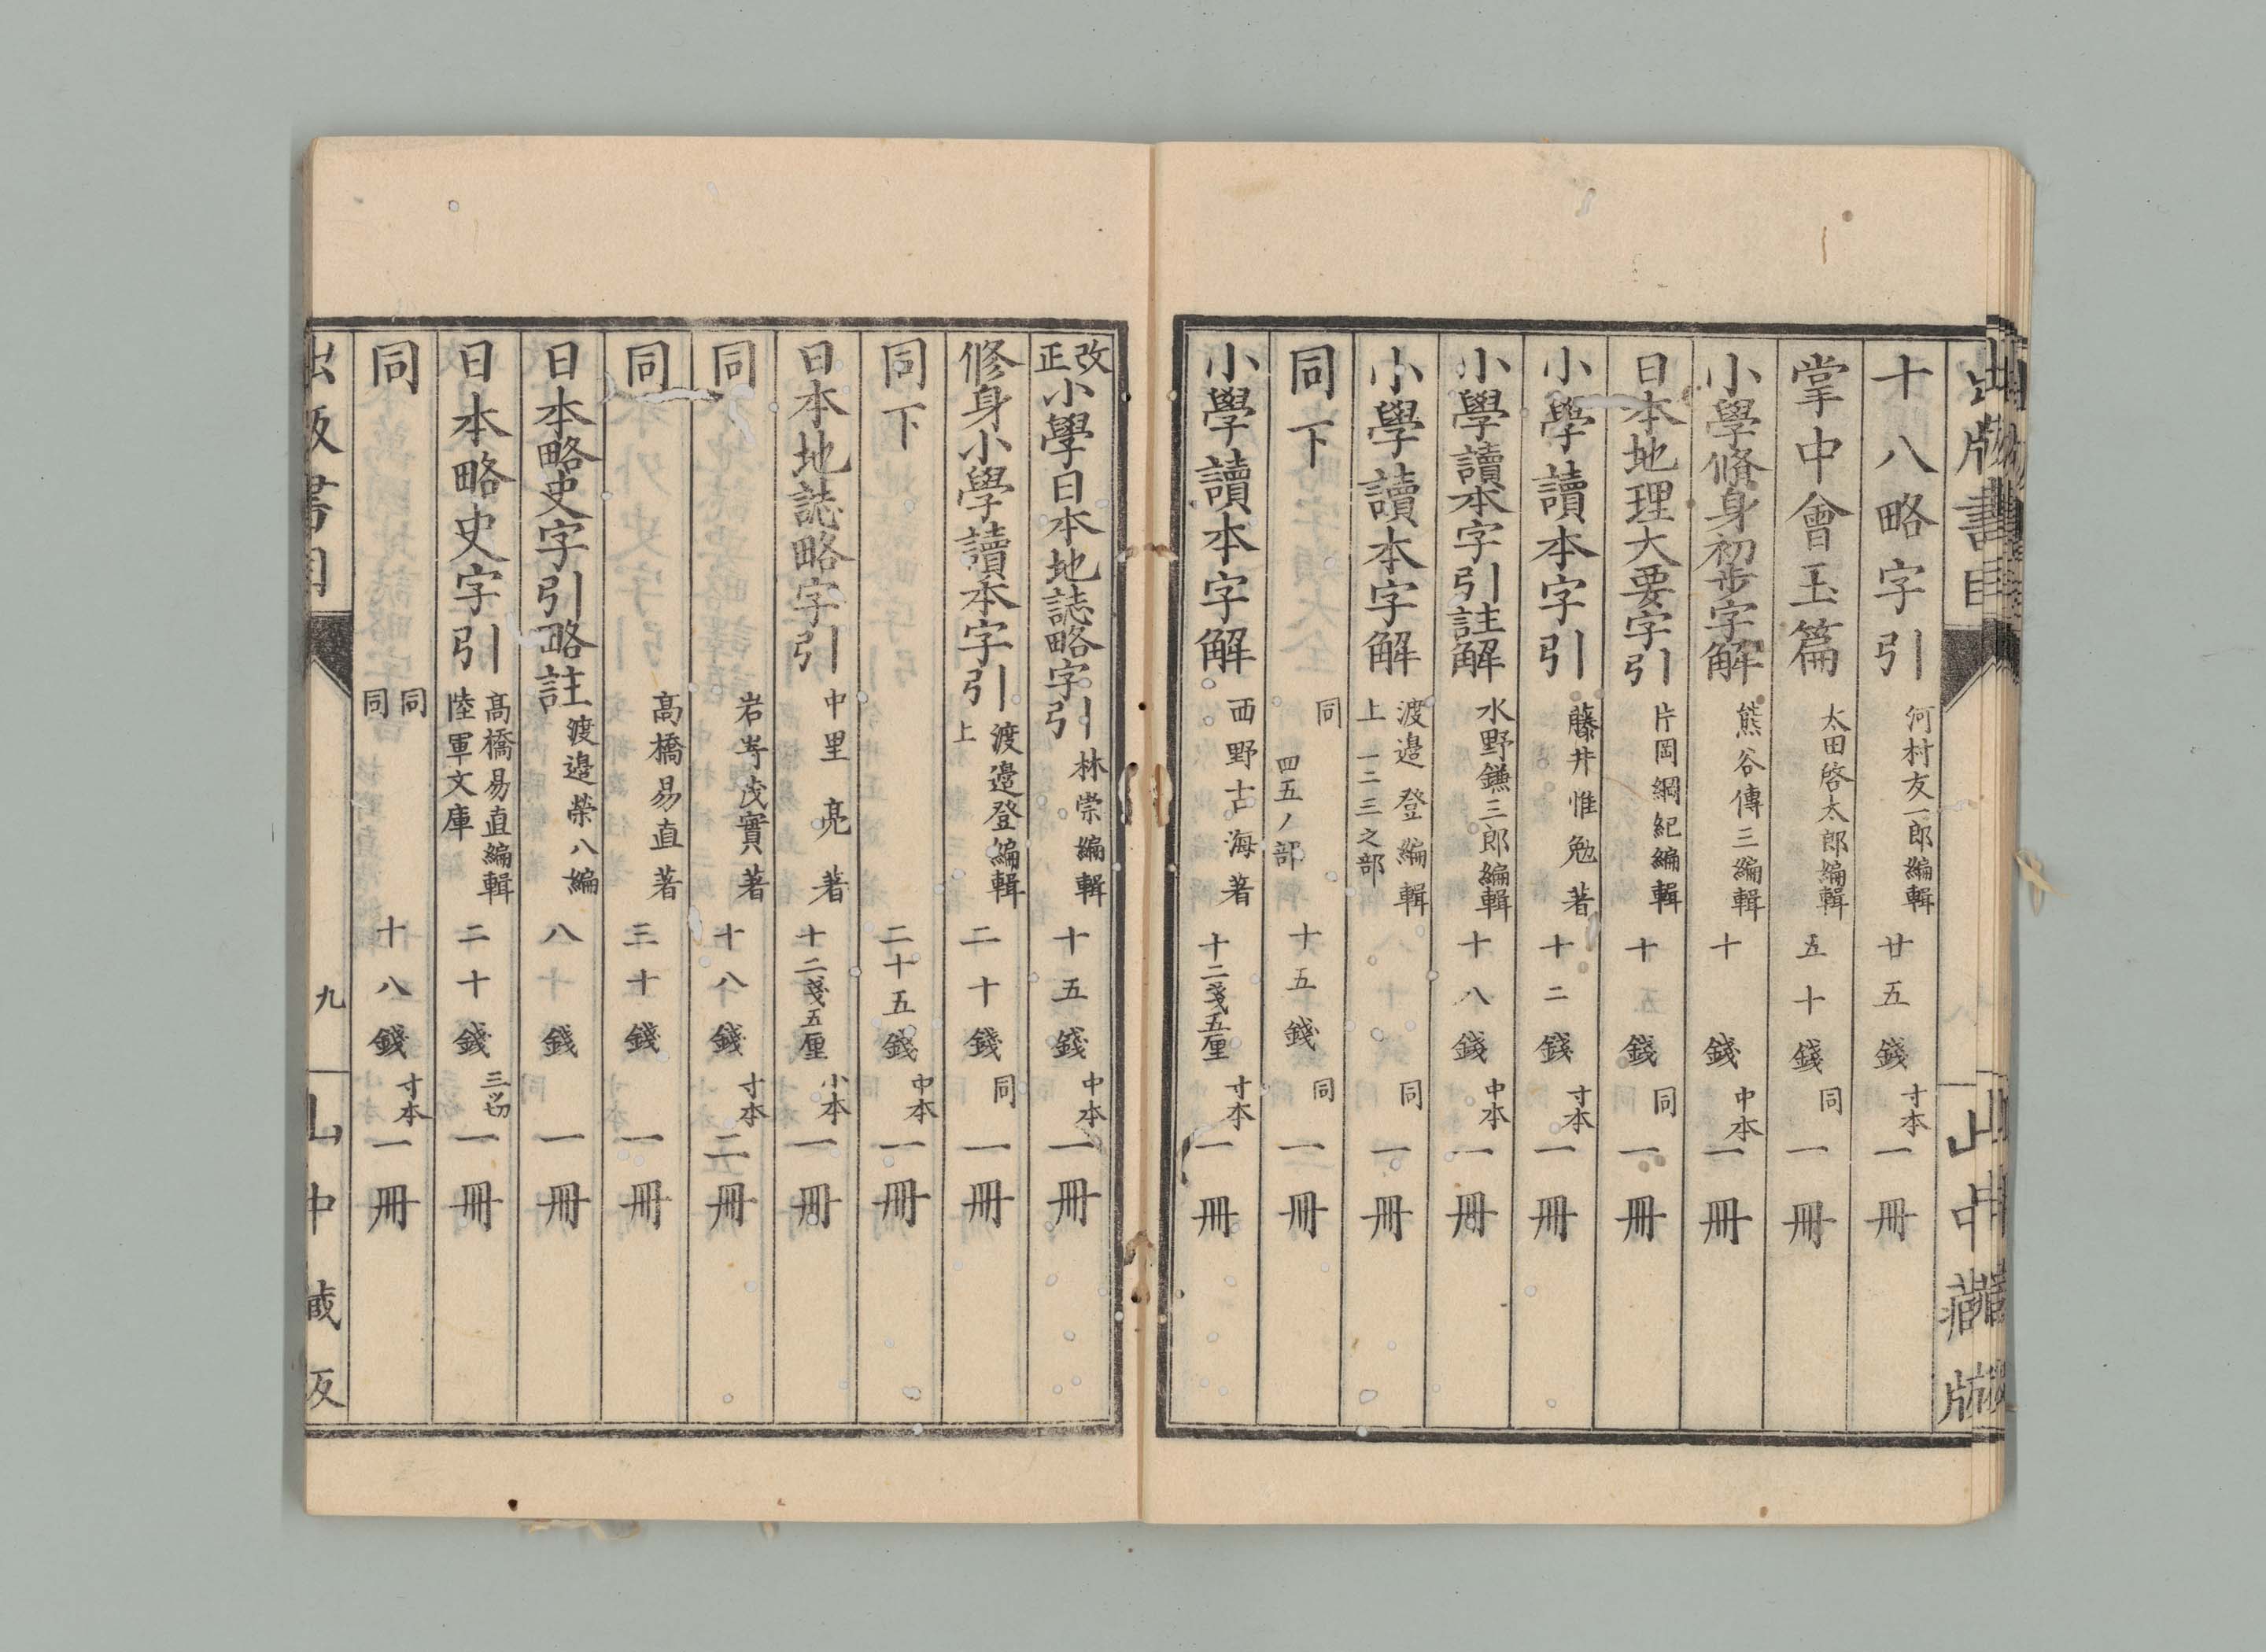 出版書目 山中藏版
十八略字引 河村友一郎編輯 廿五錢 寸本 一冊
掌中會玉篇 太田啓太郎編輯 五十錢 同 一冊
小學脩身初步字解 熊谷傳三編輯 十錢 中本 一冊
日本地理大要字引 片岡綱紀編輯 十錢 同 一冊
小學讀本字引 藤井惟勉著 十二錢 寸本 一冊
小學讀本字引註解 水野鎌三郎編輯 十八錢 中本 一冊
小學讀本字解 渡邉登編輯 上 一二三之部 同 一冊
同下 同 四五ノ部 十五錢 同 一冊
小學讀本字解 西野古海著 十二錢五厘 寸本 一冊
改正小學日本地誌略字引 林崇編輯 十五錢 中本 一冊
修身小學讀本字引 上 渡邉登編輯 二十錢 同 一冊
同下 二十五錢 中本 一冊
日本地誌略字引 中里亮著 十二錢五厘 小本 一冊
同 岩㟢茂實著 十八錢 寸本 二冊
同 髙橋易直著 三十錢 一冊
日本略史字引略註 渡邉榮八編 八錢 一冊
日本略史字引 髙橋易直編輯 陸軍文庫 二十錢 三ツ切 一冊
同 同 同 十八錢 寸本 一冊
出版書目 九 山中藏版